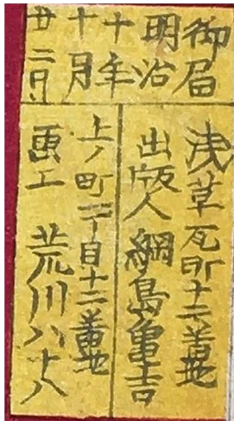 御届
明治
十年
十月
廿二日
浅草瓦町十二番地
出版人 綱島亀吉
上ノ町一丁目十二番地
画工 荒川八十八